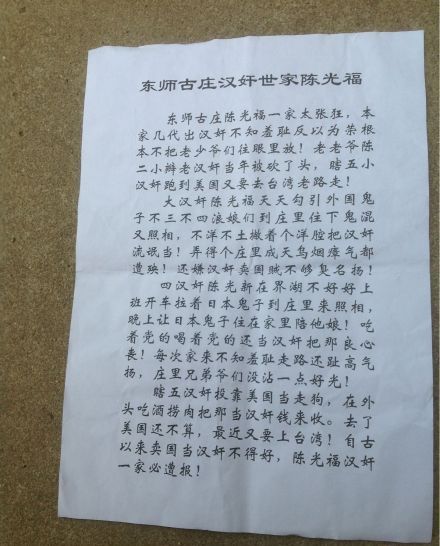 东师古庄汉奸世家陈光福
东师古庄陈光福一家太张狂，本
家几代出汉奸不知羞耻反以为荣根
本不把老少爷们住眼里放！老老爷陈
二小辫老汉奸当年被砍了头，瞎五小
汉奸跑到美国又要去台湾老路走！
大汉奸陈光福天天勾引外国鬼
子不三不四浪娘们到庄里住下鬼混
又照相，不洋不土撇着个洋腔把汉奸
流氓当！弄得个庄里成天乌烟瘴气都
遭殃！还嫌汉奸卖国贼不够臭名扬！
四汉奸陈光新在界湖不好好上
班开车拉着日本鬼子到庄里来照相，
晚上让日本鬼子住在家里陪他娘！吃
着党的喝着党的还当汉奸把那良心
丧！每次家来不知羞耻走路还趾高气
扬，庄里兄弟爷们没沾一点好光！
瞎五汉奸投靠美国当走狗，在外
头吃酒捞肉把那当汉奸钱来收。去了
美国还不算，最近又要上台湾！自古
以来卖国当汉奸不得好，陈光福汉奸
一家必遭报！